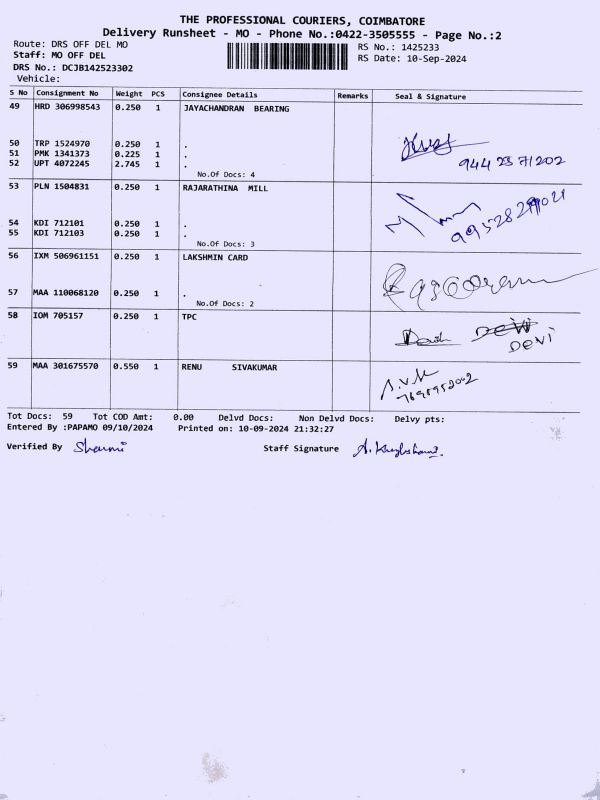 THE PROFESSIONAL COURIERS, COIMBATORE
Delivery Runsheet - MO - Phone No.:0422-3505555 - Page No.:2
Route: DRS OFF DEL MO
RS No.: 1425233
Staff: MO OFF DEL
RS Date: 10-Sep-2024
DRS No.: DCJB142523302
Vehicle:
S No Consignment No Weight PCS Consignee Details Remarks Seal & Signature
49 HRD 306998543 0.250 1 JAYACHANDRAN BEARING
50 TRP 1524970 0.250 1 .
51 PMK 1341373 0.225 1 .
52 UPT 4072245 2.745 1 .
No.Of Docs: 4
53 PLN 1504831 0.250 1 RAJARATHINA MILL
54 KDI 712101 0.250 1 .
55 KDI 712103 0.250 1 .
No.Of Docs: 3
56 IXM 506961151 0.250 1 LAKSHMIN CARD
57 MAA 110068120 0.250 1 .
No.Of Docs: 2
58 IOM 705157 0.250 1 TPC
DEVI
59 MAA 301675570 0.550 1 RENU SIVAKUMAR
Tot Docs: 59 Tot COD Amt: 0.00 Delvd Docs: Non Delvd Docs: Delvy pts:
Entered By :PAPAMO 09/10/2024 Printed on: 10-09-2024 21:32:27
Verified By Sharmi Staff Signature